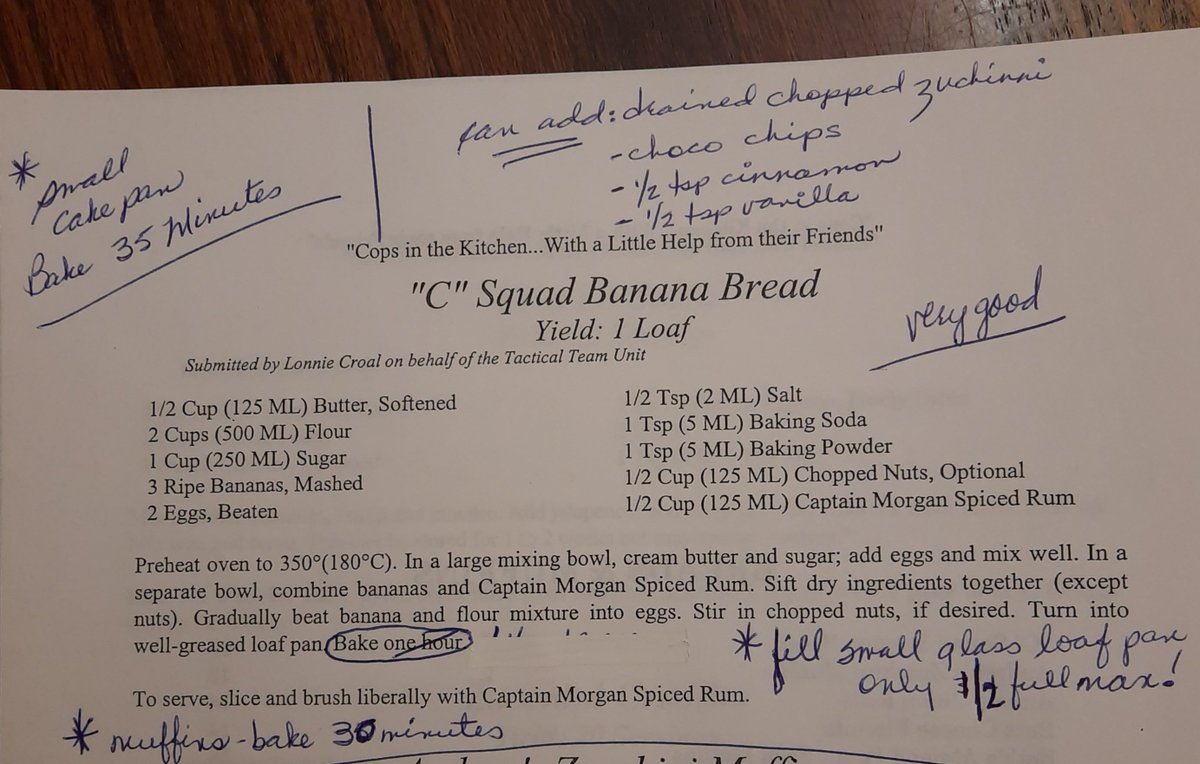 can add: drained chopped zuchinni
- choco chips
- 1/2 tsp cinnamon
- 1/2 tsp vanilla
* small
cake pan
Bake 35 Minutes
"Cops in the Kitchen...With a Little Help from their Friends"
"C" Squad Banana Bread
Yield: 1 Loaf
very good
Submitted by Lonnie Croal on behalf of the Tactical Team Unit
1/2 Cup (125 ML) Butter, Softened
2 Cups (500 ML) Flour
1 Cup (250 ML) Sugar
3 Ripe Bananas, Mashed
2 Eggs, Beaten
1/2 Tsp (2 ML) Salt
1 Tsp (5 ML) Baking Soda
1 Tsp (5 ML) Baking Powder
1/2 Cup (125 ML) Chopped Nuts, Optional
1/2 Cup (125 ML) Captain Morgan Spiced Rum
Preheat oven to 350°(180°C). In a large mixing bowl, cream butter and sugar; add eggs and mix well. In a
separate bowl, combine bananas and Captain Morgan Spiced Rum. Sift dry ingredients together (except
nuts). Gradually beat banana and flour mixture into eggs. Stir in chopped nuts, if desired. Turn into
well-greased loaf pan Bake one hour
* fill small glass loaf pan
only 1/2 full max!
To serve, slice and brush liberally with Captain Morgan Spiced Rum.
* muffins - bake 30 minutes